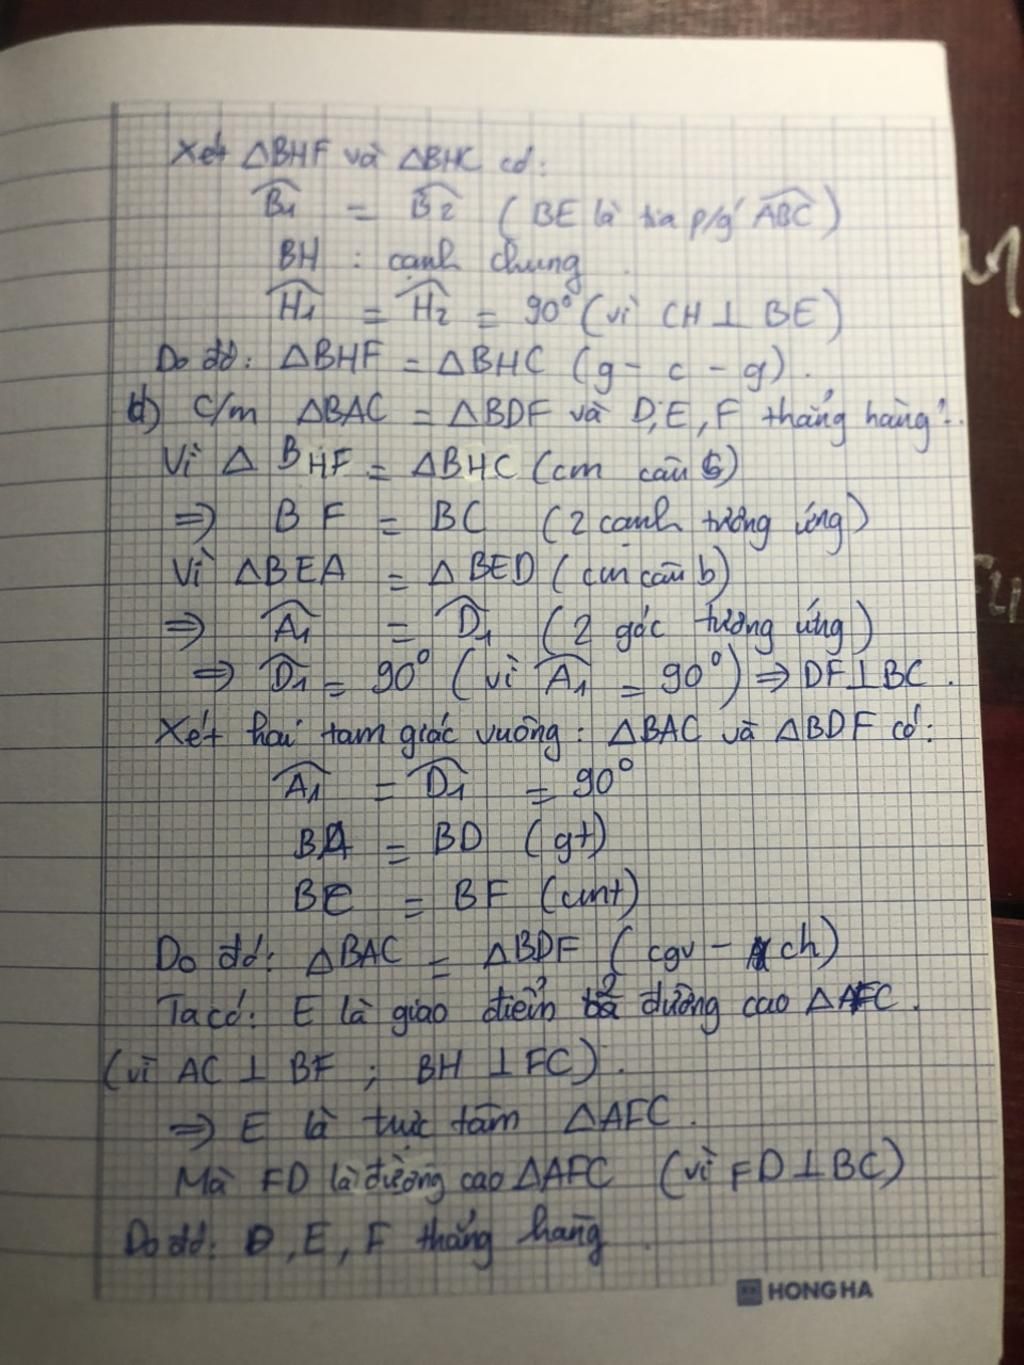 Xét △BHF và △BHC có:
B̂₁ = B̂₂ (BE là tia p/g ABC)
BH : cạnh chung
Ĥ₁ = Ĥ₂ = 90° (vì CH ⊥ BE)
Do đó: △BHF = △BHC (g - c - g).
d) c/m △BAC = △BDF và D, E, F thẳng hàng.
Vì △BHF = △BHC (cm câu
⇒ BF = BC (2 cạnh tương ứng)
Vì △BEA = △BED (cm câu b)
⇒ Â₁ = D̂₁ (2 góc tương ứng)
⇒ D̂₁ = 90° (vì Â₁ = 90°) ⇒ DF ⊥ BC.
Xét hai tam giác vuông: △BAC và △BDF có:
Â₁ = D̂₁ = 90°
BA = BD (gt)
BC = BF (cmt)
Do đó: △BAC = △BDF (cgv - ch)
Ta có: E là giao điểm 2 đường cao △AFC.
(vì AC ⊥ BF ; BH ⊥ FC).
⇒ E là trực tâm △AFC.
Mà FD là đường cao △AFC (vì FD ⊥ BC)
Do đó: D, E, F thẳng hàng.
HONG HA